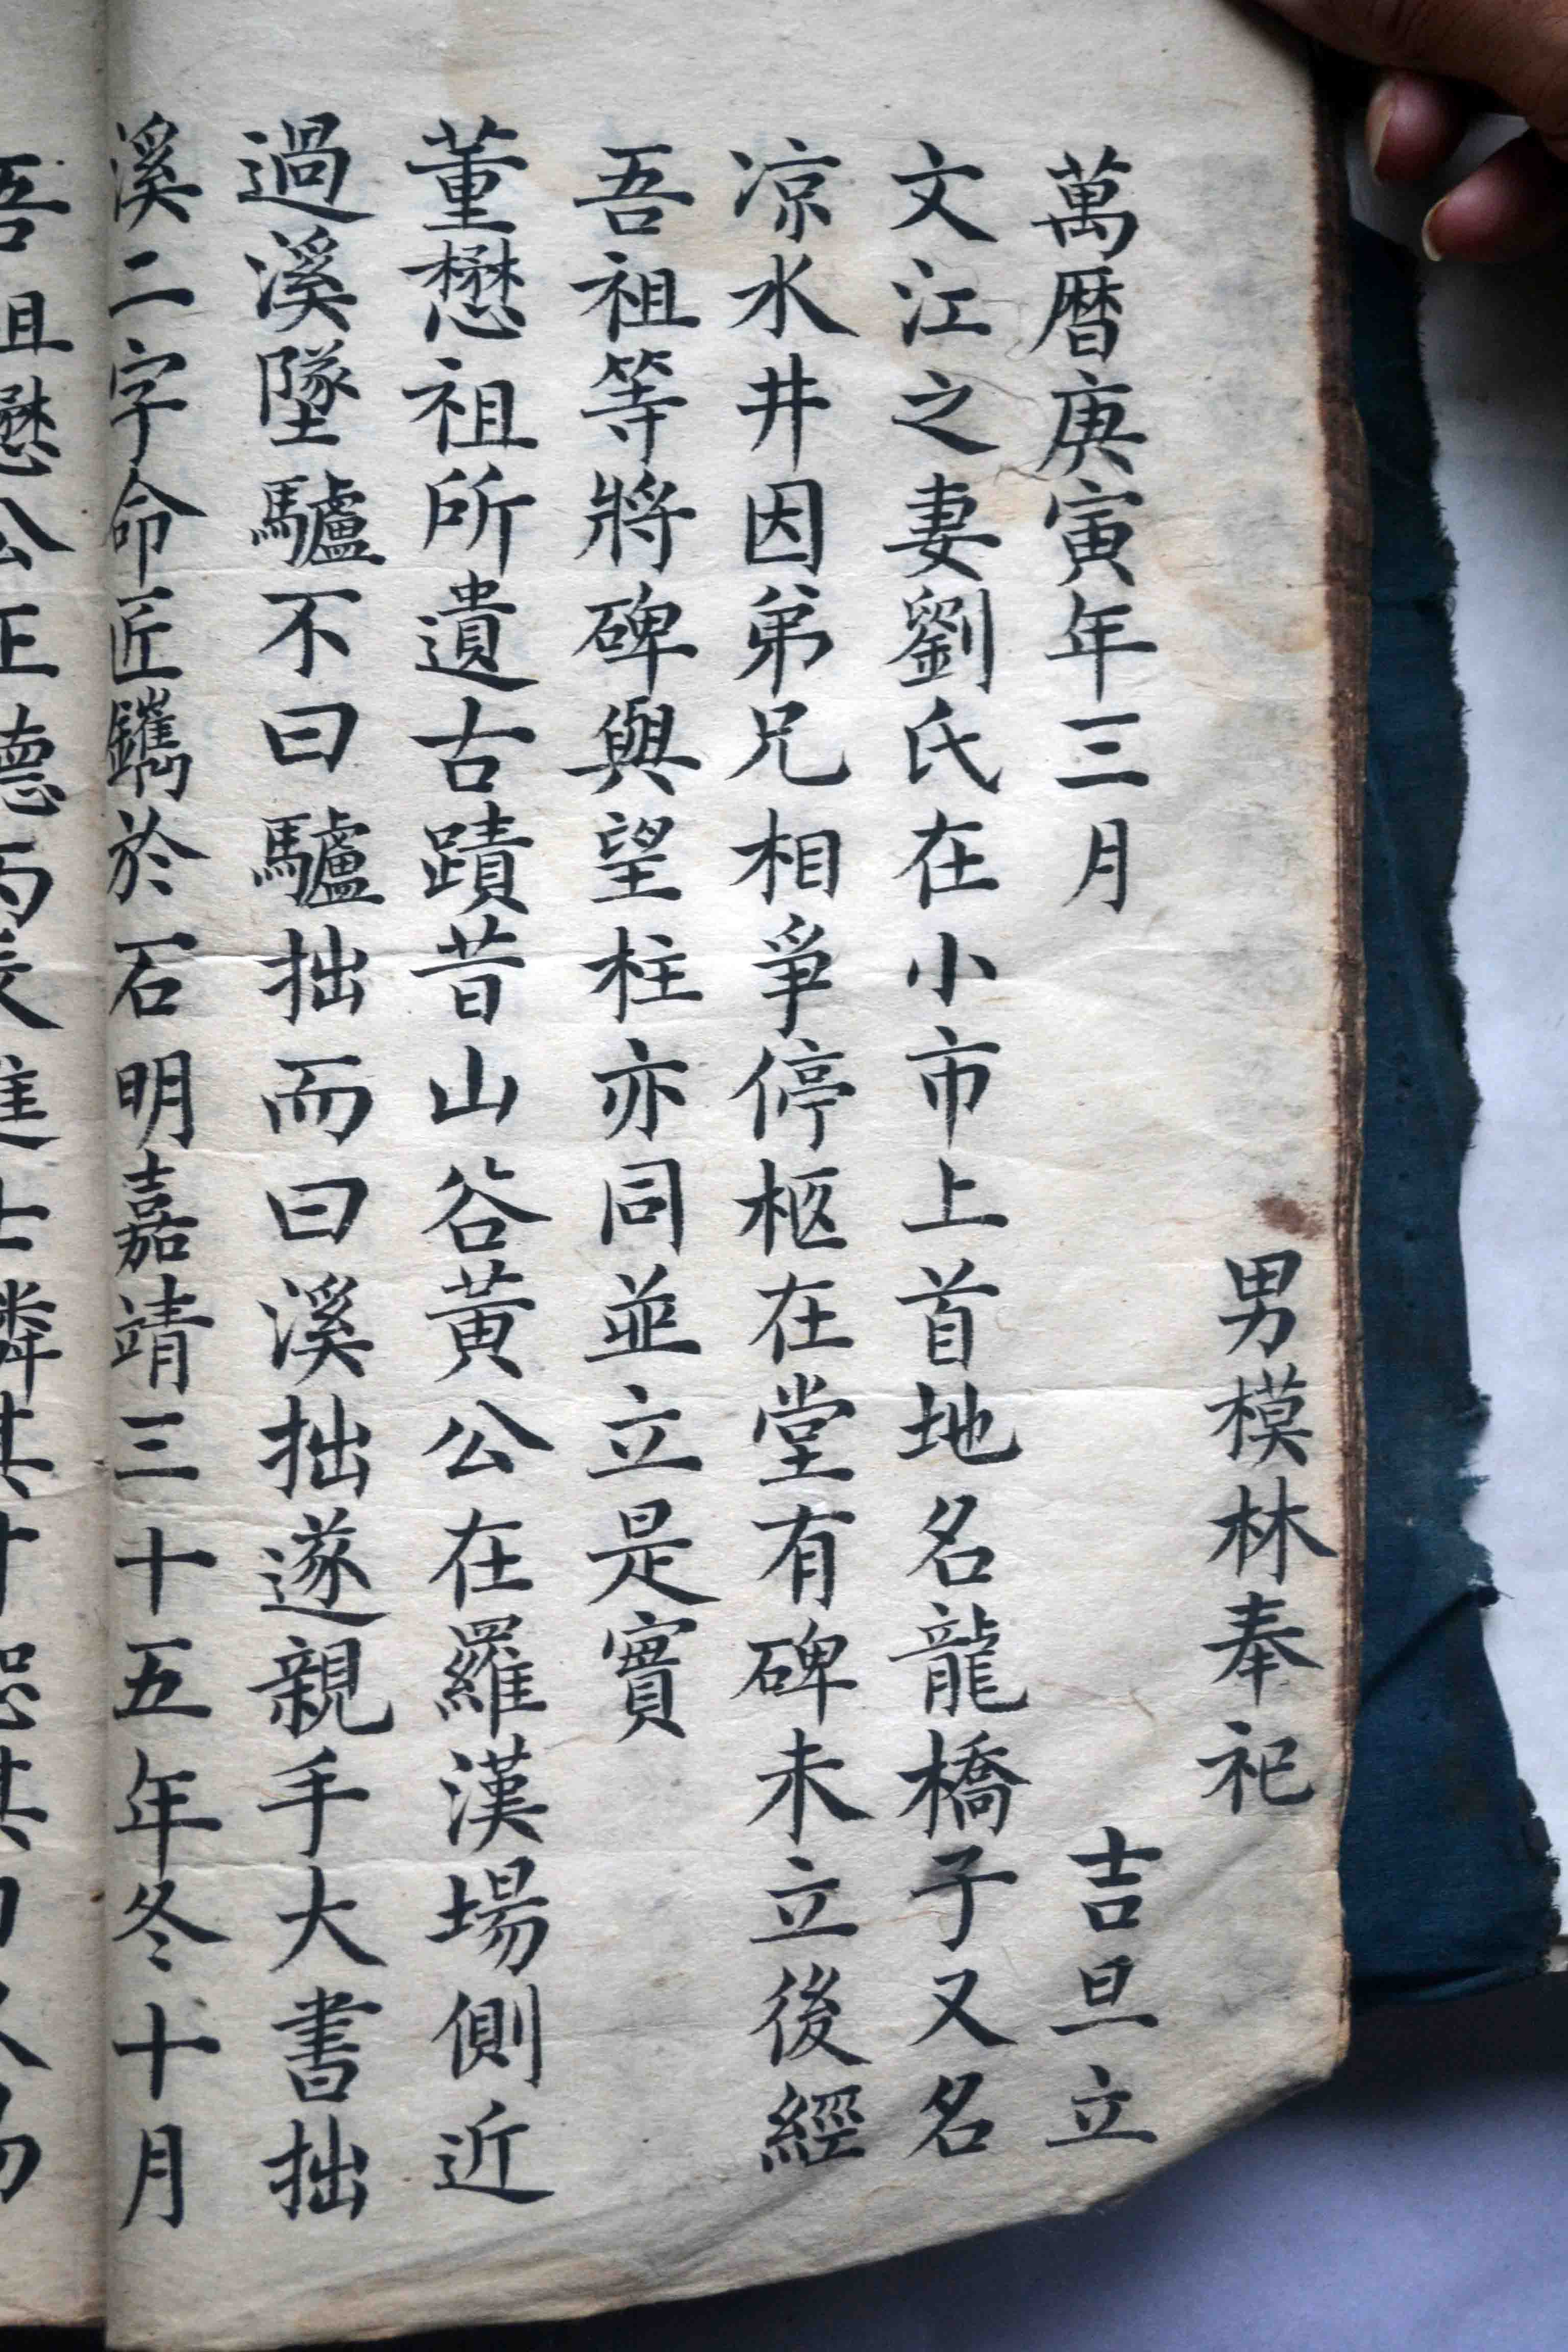 男模林奉祀
萬暦庚寅年三月 吉旦立
文江之妻劉氏在小市上首地名龍橋子又名
凉水井因弟兄相爭停柩在堂有碑未立後經
吾祖等將碑與望柱亦同並立是實
董懋祖所遺古蹟昔山谷黃公在羅漢場側近
過溪墜驢不曰驢拙而曰溪拙遂親手大書拙
溪二字命匠鐫於石明嘉靖三十五年冬十月
吾祖懋公正德丙辰進士